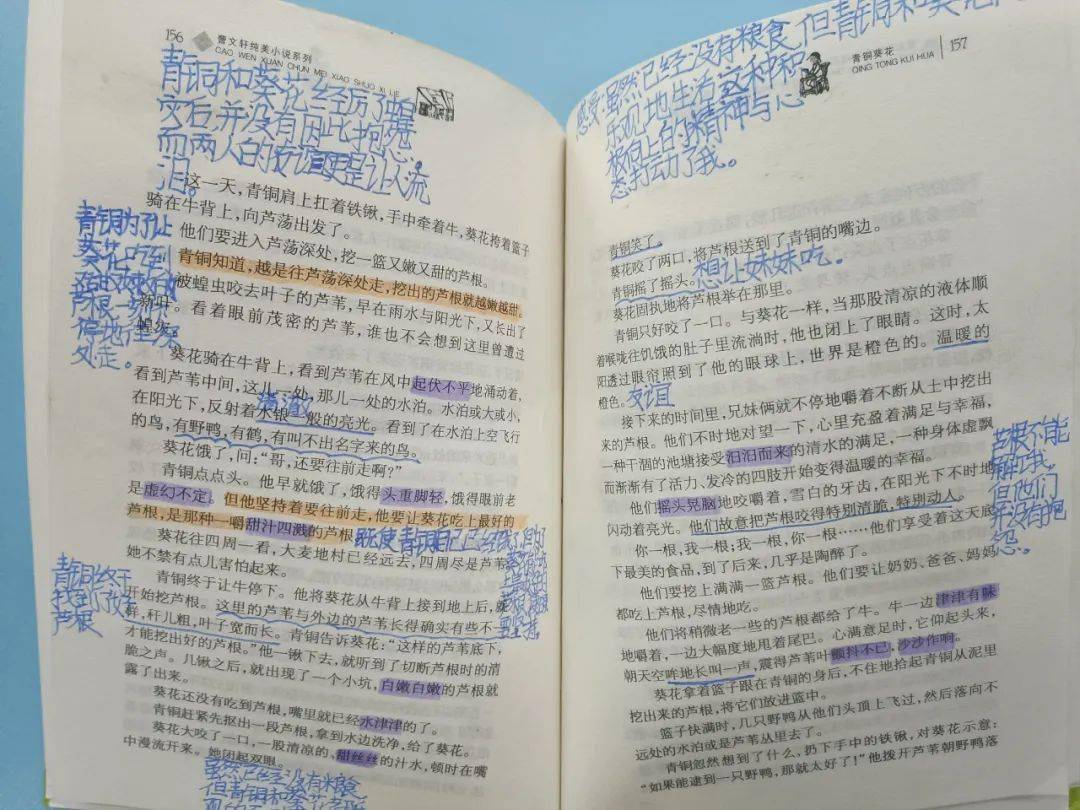 156
曹文轩纯美小说系列
CAO WEN XUAN CHUN MEI XIAO SHUO XI LIE
青铜和葵花经历了蝗
灾后,并没有因此抱怨。
而两人的友谊更是让人流
泪。
这一天,青铜肩上扛着铁锹,手中牵着牛,葵花挎着篮子
骑在牛背上,向芦荡出发了。
他们要进入芦荡深处,挖一篮又嫩又甜的芦根。
青铜知道,越是往芦荡深处走,挖出的芦根就越嫩越甜。
被蝗虫咬去叶子的芦苇,早在雨水与阳光下,又长出了
新叶。看着眼前茂密的芦苇,谁也不会想到这里曾遭过
蝗灾。
青铜为了让
葵花吃到
芦根一
停地往深
处走。
葵花骑在牛背上,看到芦苇在风中起伏不平地涌动着,
看到芦苇中间,这儿一处,那儿一处的水泊。水泊或大或小,
清澈
在阳光下,反射着水银一般的亮光。看到了在水泊上空飞行
的鸟,有野鸭,有鹤,有叫不出名字来的鸟。
葵花饿了,问:“哥,还要往前走啊?”
青铜点点头。他早就饿了,饿得头重脚轻,饿得眼前老
是虚幻不定。但他坚持着要往前走,他要让葵花吃上最好的
芦根,是那种一嚼甜汁四溅的芦根。
既使青铜自己已经饿了
葵花往四周一看,大麦地村已经远去,四周尽是芦苇,
她不禁有点儿害怕起来。
青铜终于让牛停下。他将葵花从牛背上接到地上后,就
开始挖芦根。这里的芦苇与外边的芦苇长得确实有些不一
样,秆儿粗,叶子宽而长。青铜告诉葵花:“这样的芦苇底下,
才能挖出好的芦根。”他一锹下去,就听到了切断芦根时的清
脆之声。几锹之后,就出现了一个小坑,白嫩白嫩的芦根就
露了出来。
青铜终于
找到了好
芦根
葵花还没有吃到芦根,嘴里就已经水津津的了。
青铜赶紧先抠出一段芦根,拿到水边洗净,给了葵花。
葵花大咬了一口,一股清凉的、甜丝丝的汁水,顿时在嘴
中漫流开来。她闭起双眼。
虽然已经没有粮食
但青铜
157
青铜葵花
QING TONG KUI HUA
感受:虽然已经没有粮食,但青铜和葵花
乐观地生活,这种积
极向上的精神与心
态打动了我。
青铜笑了。
葵花咬了两口,将芦根送到了青铜的嘴边。
青铜摇了摇头。
想让妹妹吃。
葵花固执地将芦根举在那里。
青铜只好咬了一口。与葵花一样,当那股清凉的液体顺
着喉咙往饥饿的肚子里流淌时,他也闭上了眼睛。这时,太
阳透过眼帘照到了他的眼球上,世界是橙色的。温暖的
橙色。
友谊
接下来的时间里,兄妹俩就不停地嚼着不断从土中挖出
来的芦根。他们不时地对望一下,心里充盈着满足与幸福,
一种干涸的池塘接受汩汩而来的清水的满足,一种身体虚飘
而渐渐有了活力、发冷的四肢开始变得温暖的幸福。
他们摇头晃脑地咬嚼着,雪白的牙齿,在阳光下不时地
闪动着亮光。他们故意把芦根咬得特别清脆,特别动人。
你一根,我一根;我一根,你一根……他们享受着这天底
下最美的食品,到了后来,几乎是陶醉了。
他们要挖上满满一篮芦根。他们要让奶奶、爸爸、妈妈
都吃上芦根,尽情地吃。
但他们
并没有抱
怨。
他们将稍微老一些的芦根都给了牛。牛一边津津有味
地嚼着,一边大幅度地甩着尾巴。心满意足时,它仰起头来,
朝天空哞地长叫一声,震得芦苇叶颤抖不已,沙沙作响。
葵花拿着篮子跟在青铜的身后,不住地拾起青铜从泥里
挖出来的芦根,将它们放进篮中。
篮子快满时,几只野鸭从他们头顶上飞过,然后落向不
远处的水泊或是芦苇丛里去了。
青铜忽然想到了什么,扔下手中的铁锹,对葵花示意:
“如果能逮到一只野鸭,那就太好了!”他拨开芦苇朝野鸭落